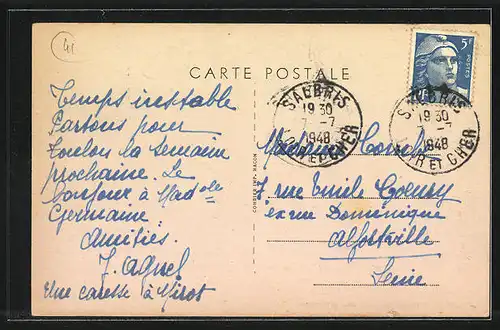 41
CARTE POSTALE
5F
POSTES
SALBRIS
19 30
7 -7
1948
LOIR ET CHER
SALBRIS
19 30
7 -7
1948
LOIR ET CHER
Temps instable
Partons pour
Toulon la semaine
prochaine. Le
bonjour à Madelle
Germaine
Amitiés.
J. Agnel
Une caresse à Mirot
COMBIER IMP. MACON
7 rue Emile
ex rue Dominique
Alfortville
Seine